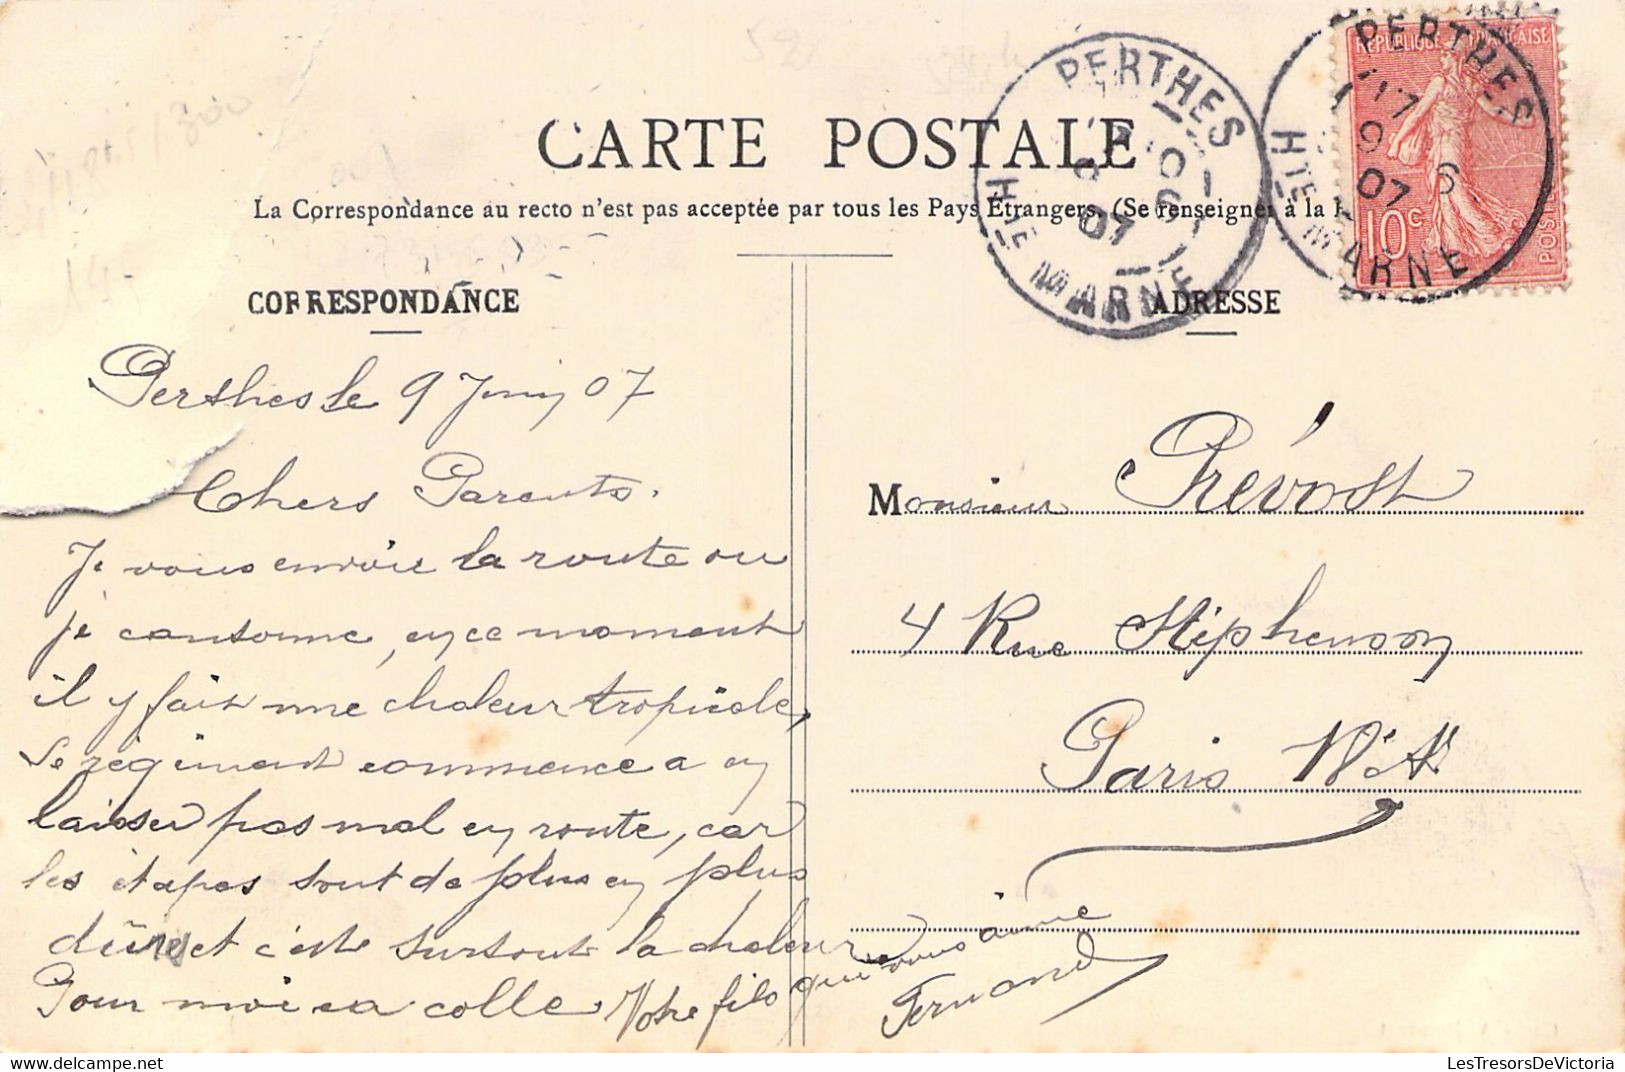 CARTE POSTALE
La Correspondance au recto n'est pas acceptée par tous les Pays Étrangers. (Se renseigner à la
CORRESPONDANCE
Perthes le 9 Juin 07
Chers Parents.
Je vous envoie la route ou
je cantonne, en ce moment
il y fait une chaleur tropicale,
le régiment commence a en
laisser pas mal en route, car
les étapes sont de plus en plus
dure et c'est surtout la chaleur
Pour moi ça colle. Votre fils qui vous aime
Fernand
ADRESSE
Monsieur Prévost
4 Rue Stéphenson
Paris
PERTHES
Hte MARNE
9 6
07
PERTHES
17
9 6
07
Hte MARNE
REPUBLIQUE FRANÇAISE
10c
POSTES
LesTresorsDeVictoria